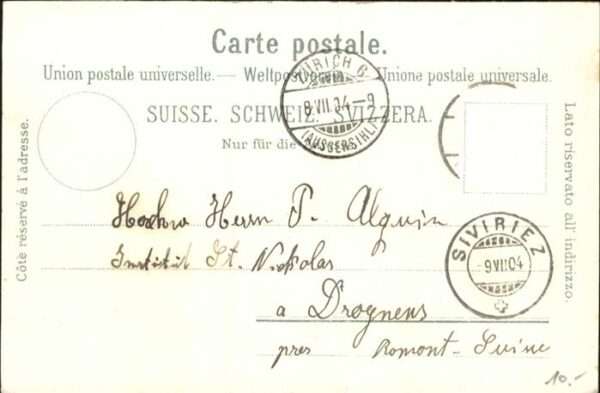 Carte postale.
Union postale universelle. — Weltpostverein. — Unione postale universale.
SUISSE. SCHWEIZ. SVIZZERA.
Nur für die
Côté réservé à l'adresse.
Lato riservato all' indirizzo.
ZÜRICH 6
8.VII.04.-9
(AUSSERSIHL)
SIVIRIEZ
9.VII.04
Herrn P. Alguin
Institut St. Nickolas
a Drognens
pres Romont-Suisse
10.-